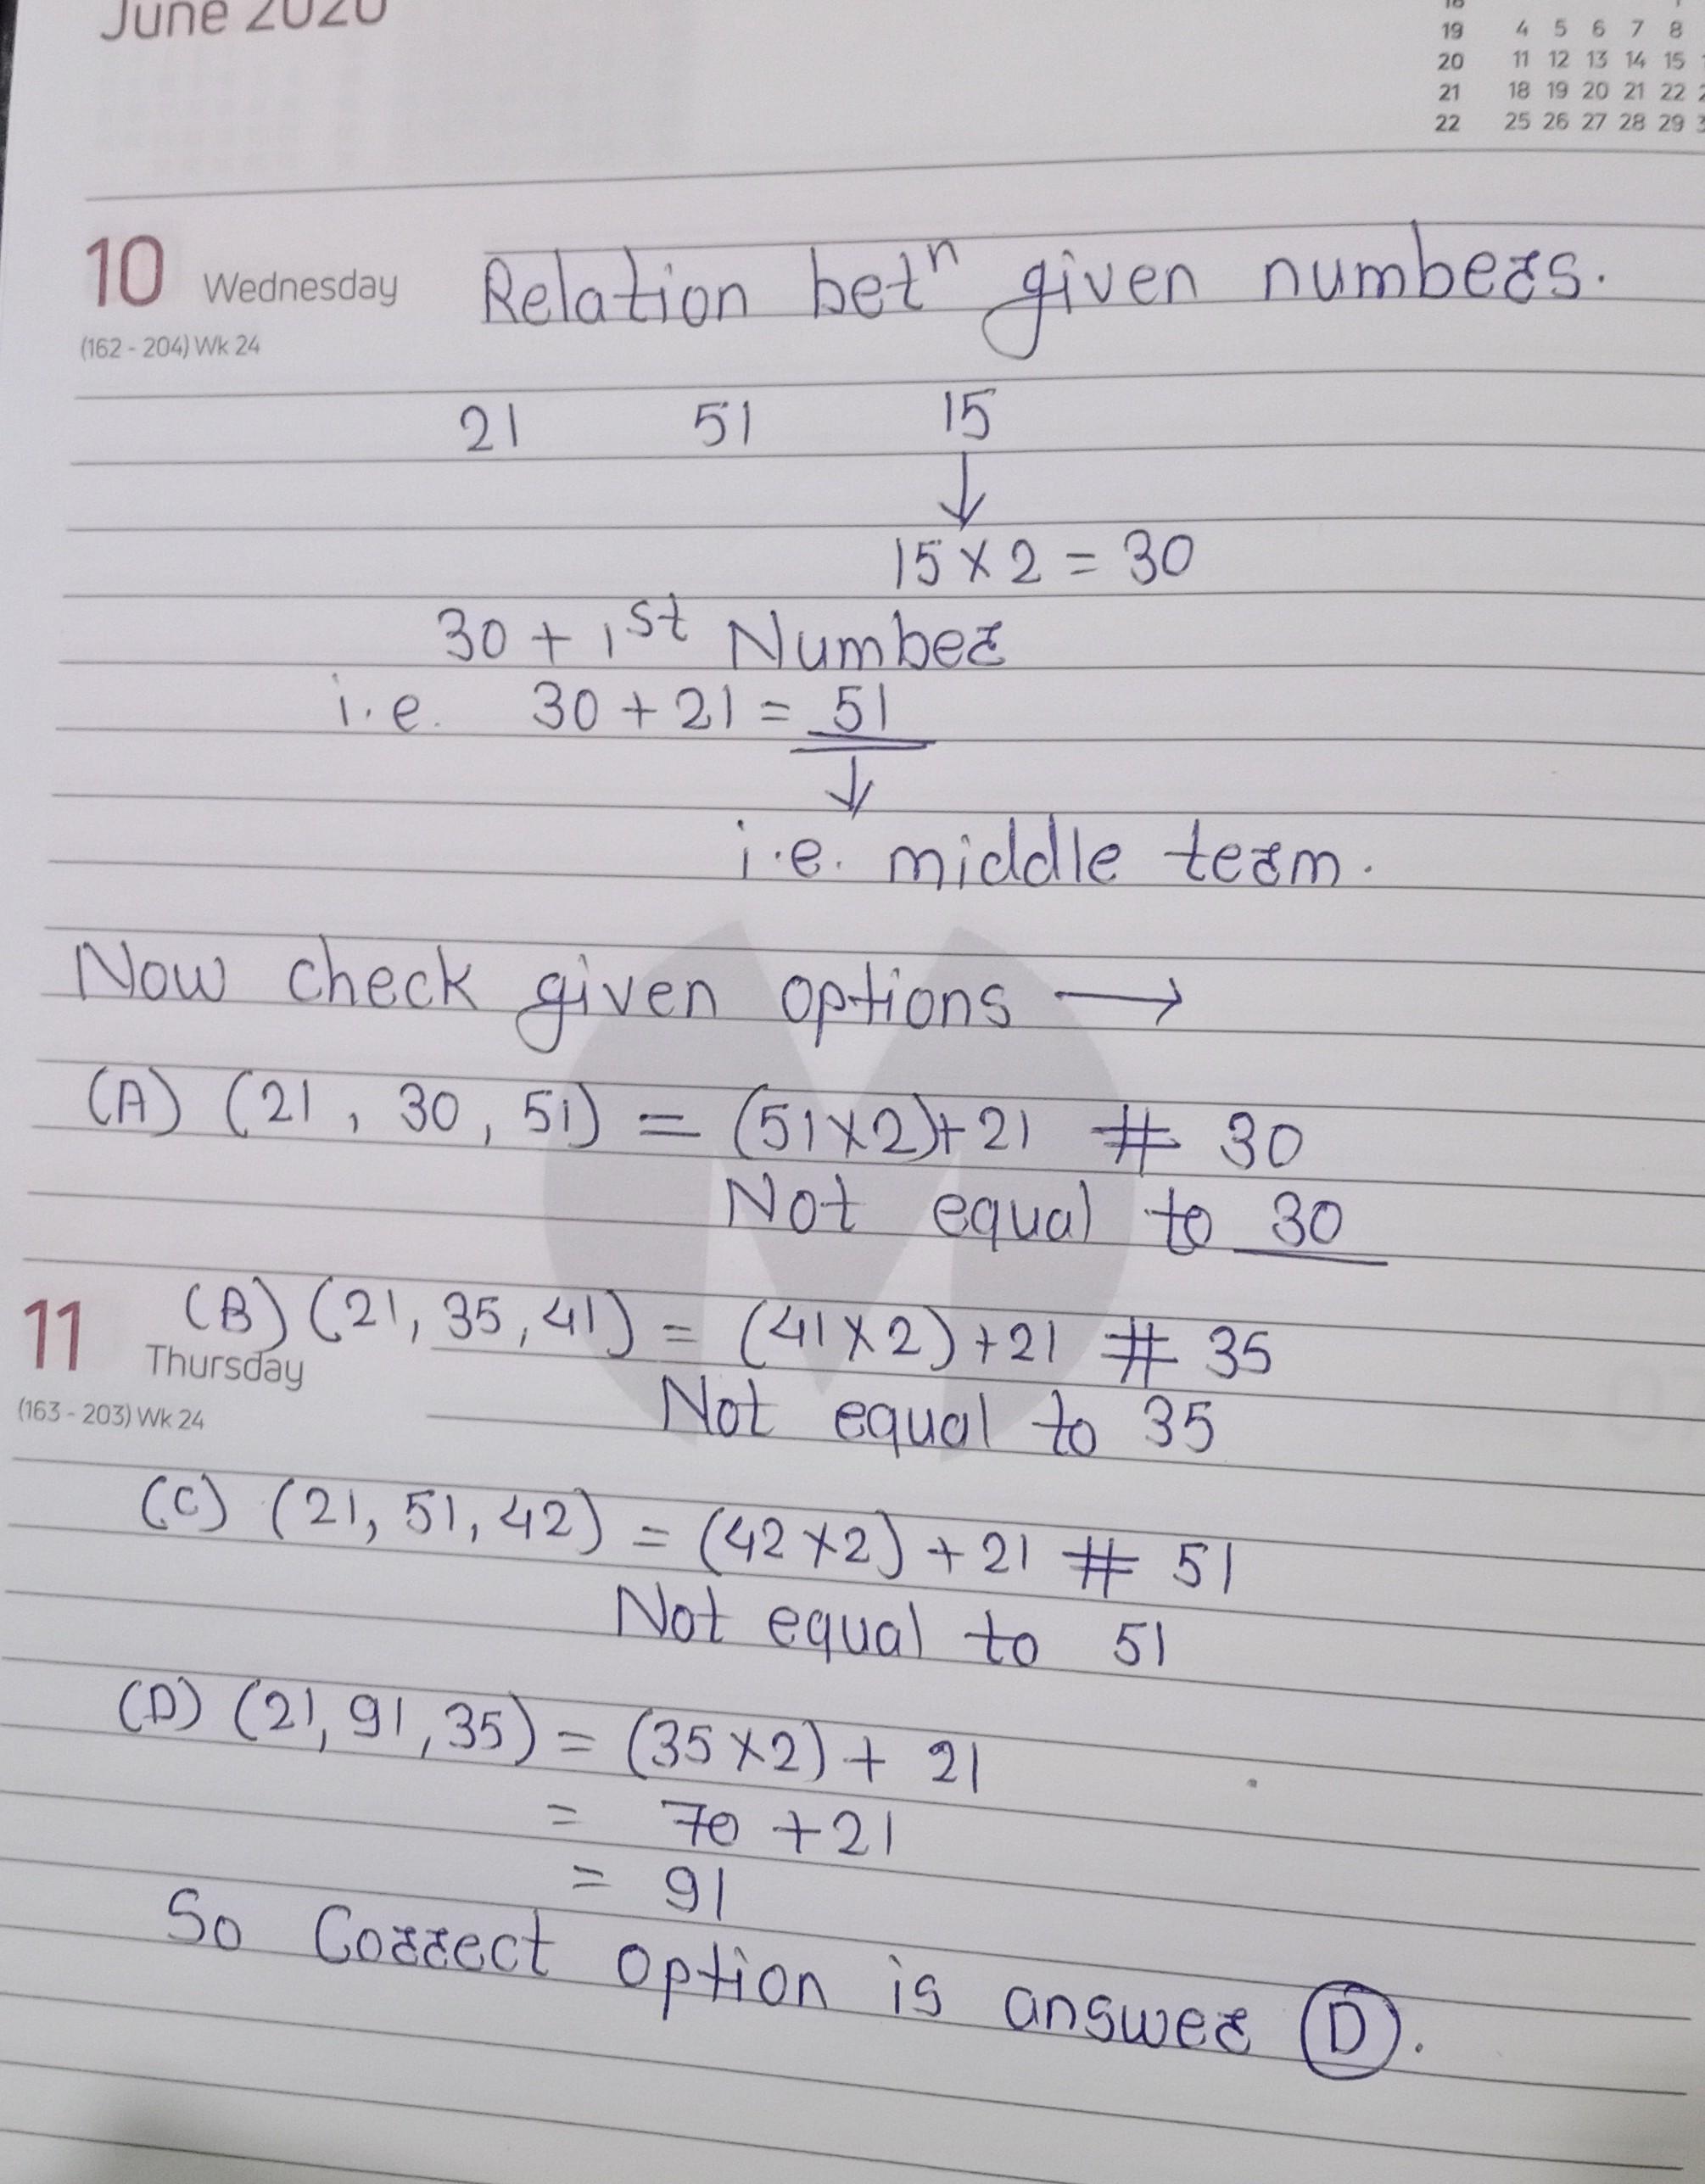 June 2020
18
19 4 5 6 7 8
20 11 12 13 14 15
21 18 19 20 21 22
22 25 26 27 28 29
10 Wednesday
(162 - 204) Wk 24
Relation betⁿ given numbers.
21 51 15
↓
15 × 2 = 30
30 + 1st Number
i.e. 30 + 21 = 51
↓
i.e. middle term.
Now check given options →
(A) (21, 30, 51) = (51×2)+21 ≠ 30
Not equal to 30
11 Thursday
(163 - 203) Wk 24
(B) (21, 35, 41) = (41×2)+21 ≠ 35
Not equal to 35
(C) (21, 51, 42) = (42×2) + 21 ≠ 51
Not equal to 51
(D) (21, 91, 35) = (35×2) + 21
= 70 + 21
= 91
So Correct option is answer (D).